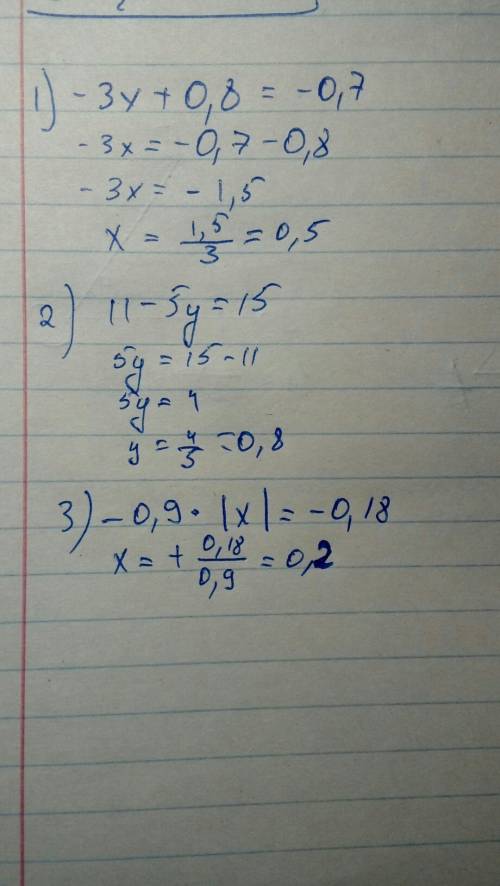 1) -3x + 0,8 = -0,7
-3x = -0,7 - 0,8
-3x = -1,5
x = 1,5/3 = 0,5
2) 11 - 5y = 15
5y = 15 - 11
5y = 4
y = 4/5 = 0,8
3) -0,9 · |x| = -0,18
x = + 0,18/0,9 = 0,2